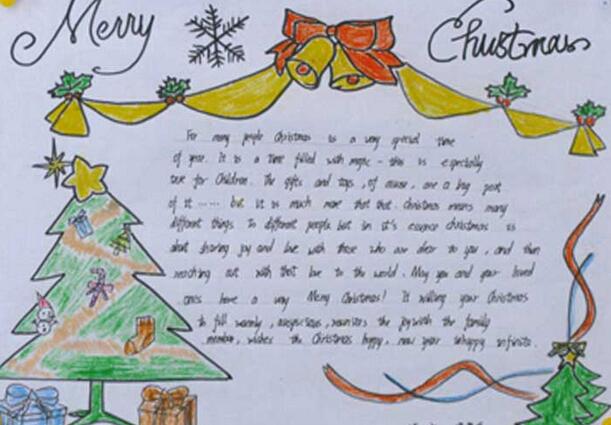 Merry Christmas
For many people Christmas is a very special time
of year. It is a time filled with magic - this is especially
true for Children. The gifts and toys, of course, are a big part
of it ...... but it is much more that that. Christmas means many
different things to different people but in it's essence christmas is
about sharing joy and love with those who are dear to you, and then
reaching out with that love to the world. May you and your loved
ones have a very Merry Christmas! Is willing your Christmas
to fill warmly, auspicious, reunites the joy with the family
member, wishes the Christmas happy, new year unhappy infinite.